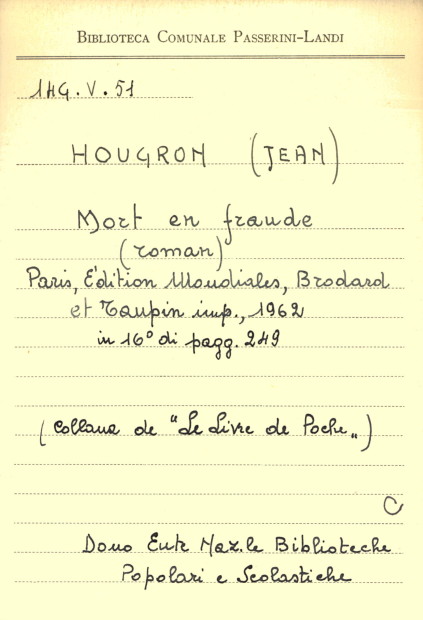 BIBLIOTECA COMUNALE PASSERINI-LANDI
1HG.V.51
HOUGRON (JEAN)
Mort en fraude
(roman)
Paris, Édition Mondiales, Brodard
et Taupin imp., 1962
in 16° di pagg. 249
(Collana de "Le Livre de Poche„)
C
Dono Ente Naz.le Biblioteche
Popolari e Scolastiche